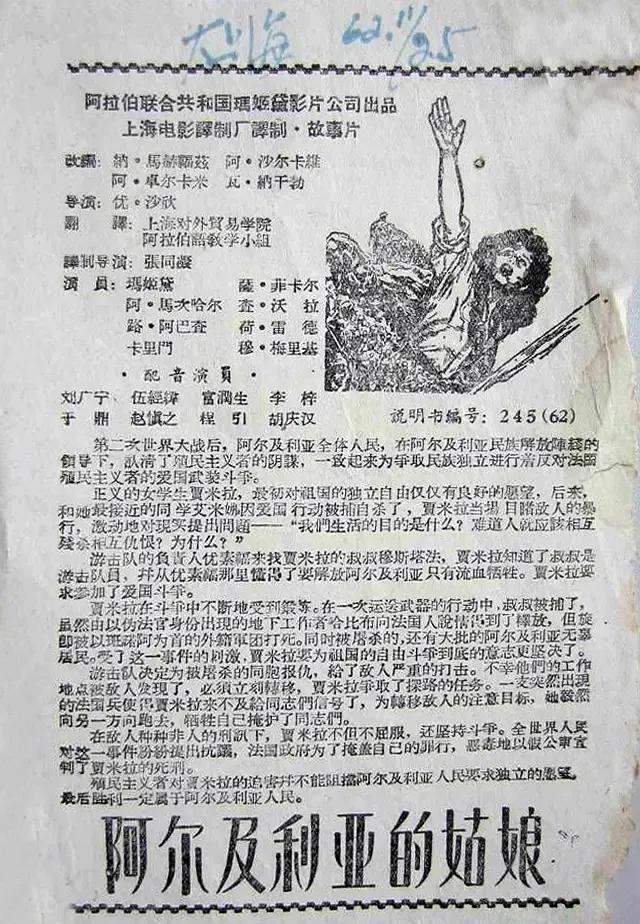 大州海 62.11/25
阿拉伯联合共和国瑪姬黛影片公司出品
上海电影譯制厂譯制·故事片
改編：納·馬赫福兹 阿·沙尔卡維
阿·卓尔卡米 瓦·納干勃
导演：优·沙欣
翻譯：上海对外貿易学院
阿拉伯語教学小組
譯制导演：張同凝
演員：瑪姬黛 薩·菲卡尔
阿·馬次哈尔 查·沃拉
路·阿巴查 荷·雷德
卡里門 穆·梅里基
·配音演員·
刘广宁 伍經緯 富潤生 李梓
于鼎 赵慎之 程引 胡庆汉
説明书編号：245(62)
第二次世界大战后，阿尔及利亚全体人民，在阿尔及利亚民族解放陣綫的
領导下，認清了殖民主义者的阴謀，一致起来为争取民族独立进行着反对法国
殖民主义者的爱国武装斗争。
正义的女学生賈米拉，最初对祖国的独立自由仅仅有良好的愿望，后来，
和她最接近的同学艾米娣因爱国行动被捕自杀了，賈米拉当場目睹敌人的暴
行，激动地对现实提出問題——“我們生活的目的是什么？难道人就应該相互
残杀相互仇恨？为什么？”
游击队的負責人优素福来找賈米拉的叔叔穆斯塔法，賈米拉知道了叔叔是
游击队員，幷从优素福那里懂得了要解放阿尔及利亚只有流血牺牲。賈米拉要
求参加了爱国斗争。
賈米拉在斗争中不断地受到鍛炼。在一次运送武器的行动中，叔叔被捕了，
虽然由以伪法官身份出現的地下工作者哈比布向法国人說情得到了释放，但旋
即被以班諾阿为首的外籍軍团打死。同时被屠杀的，还有大批的阿尔及利亚无辜
居民。受了这一事件的刺激，賈米拉要为祖国的自由斗争到底的意志更坚决了。
游击队决定为被屠杀的同胞报仇，給了敌人严重的打击。不幸他們的工作
地点被敌人发現了，必須立刻轉移，賈米拉争取了探路的任务。一支突然出現
的法国兵使得賈米拉来不及給同志們信号了，为轉移敌人的注意目标，她毅然
向另一方向跑去，牺牲自己掩护了同志們。
在敌人种种非人的刑訊下，賈米拉不但不屈服，还坚持斗争。全世界人民
对这一事件紛紛提出抗議，法国政府为了掩盖自己的罪行，恶毒地以假公审宣
判了賈米拉的死刑。
殖民主义者对賈米拉的迫害幷不能阻擋阿尔及利亚人民要求独立的愿望。
最后胜利一定属于阿尔及利亚人民。
阿尔及利亚的姑娘